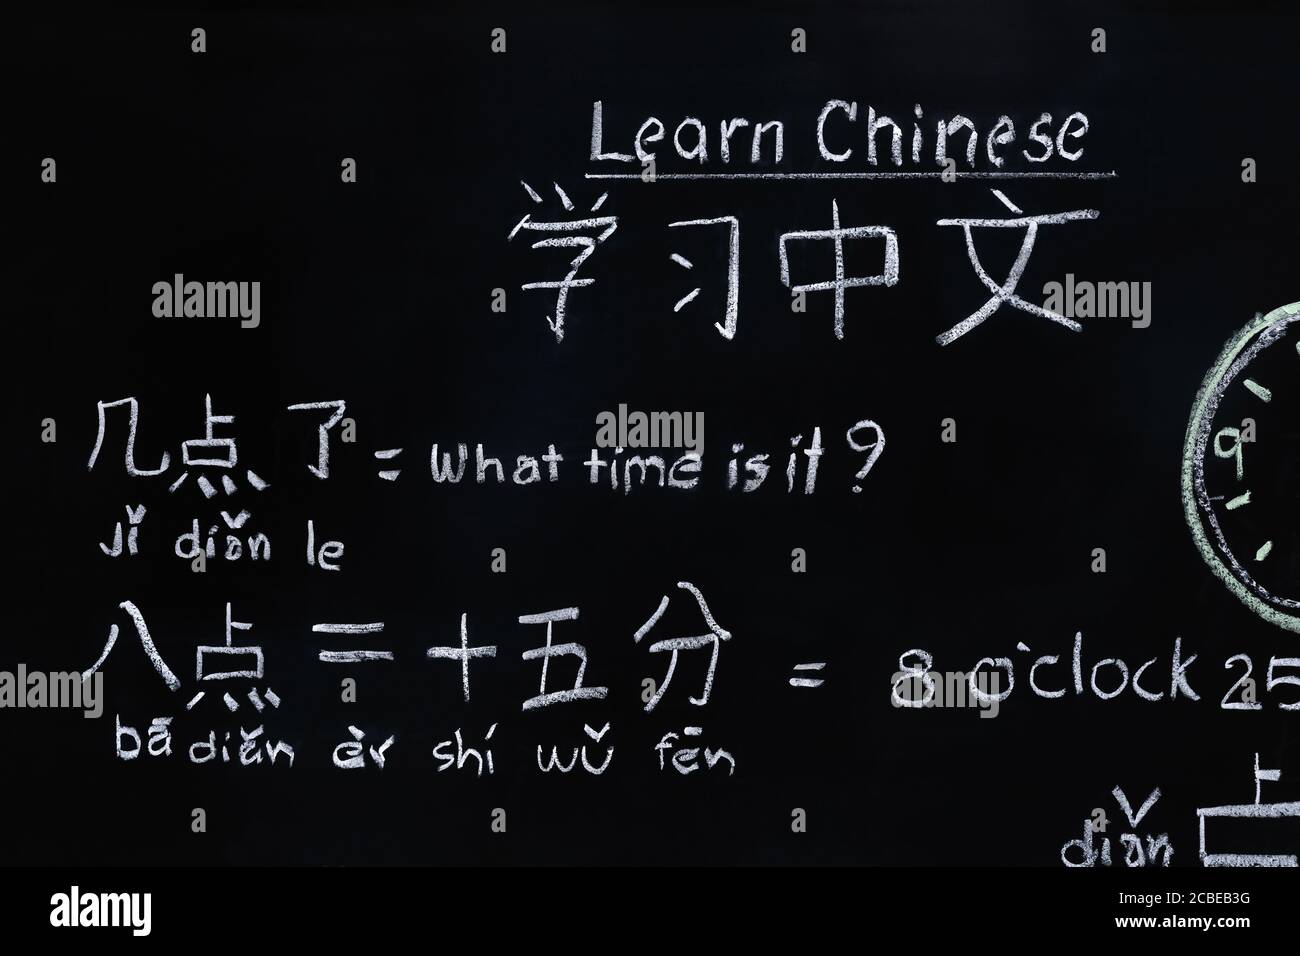 Learn Chinese
学习中文
几点了 = What time is it ?
jǐ diǎn le
八点二十五分 = 8 o'clock 25
bā diǎn èr shí wǔ fēn
9
diǎn
alamy
Image ID: 2CBEB3G
www.alamy.com